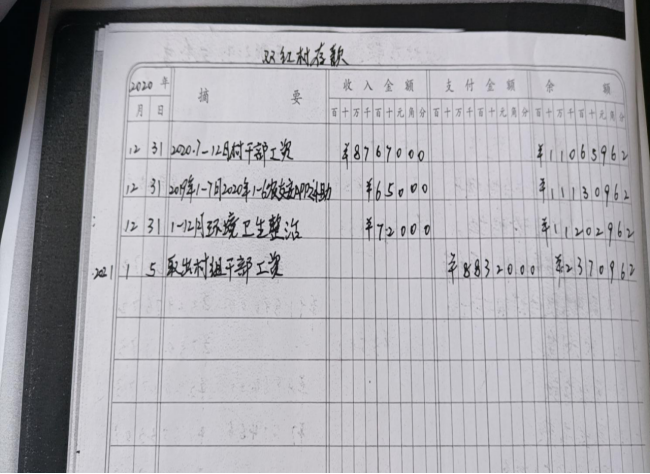 双红村存款
2020年 摘要 收入金额 支付金额 余额
月 日 百十万千百十元角分 百十万千百十元角分 百十万千百十元角分
12 31 2020.7-12月村干部工资 ¥8767000 ¥11065962
12 31 2019年1-7月2020年1-6农支宝APP补助 ¥65000 ¥11130962
12 31 1-12月环境卫生整治 ¥72000 ¥11202962
2021 1 5 取出村组干部工资 ¥8832000 ¥2370962